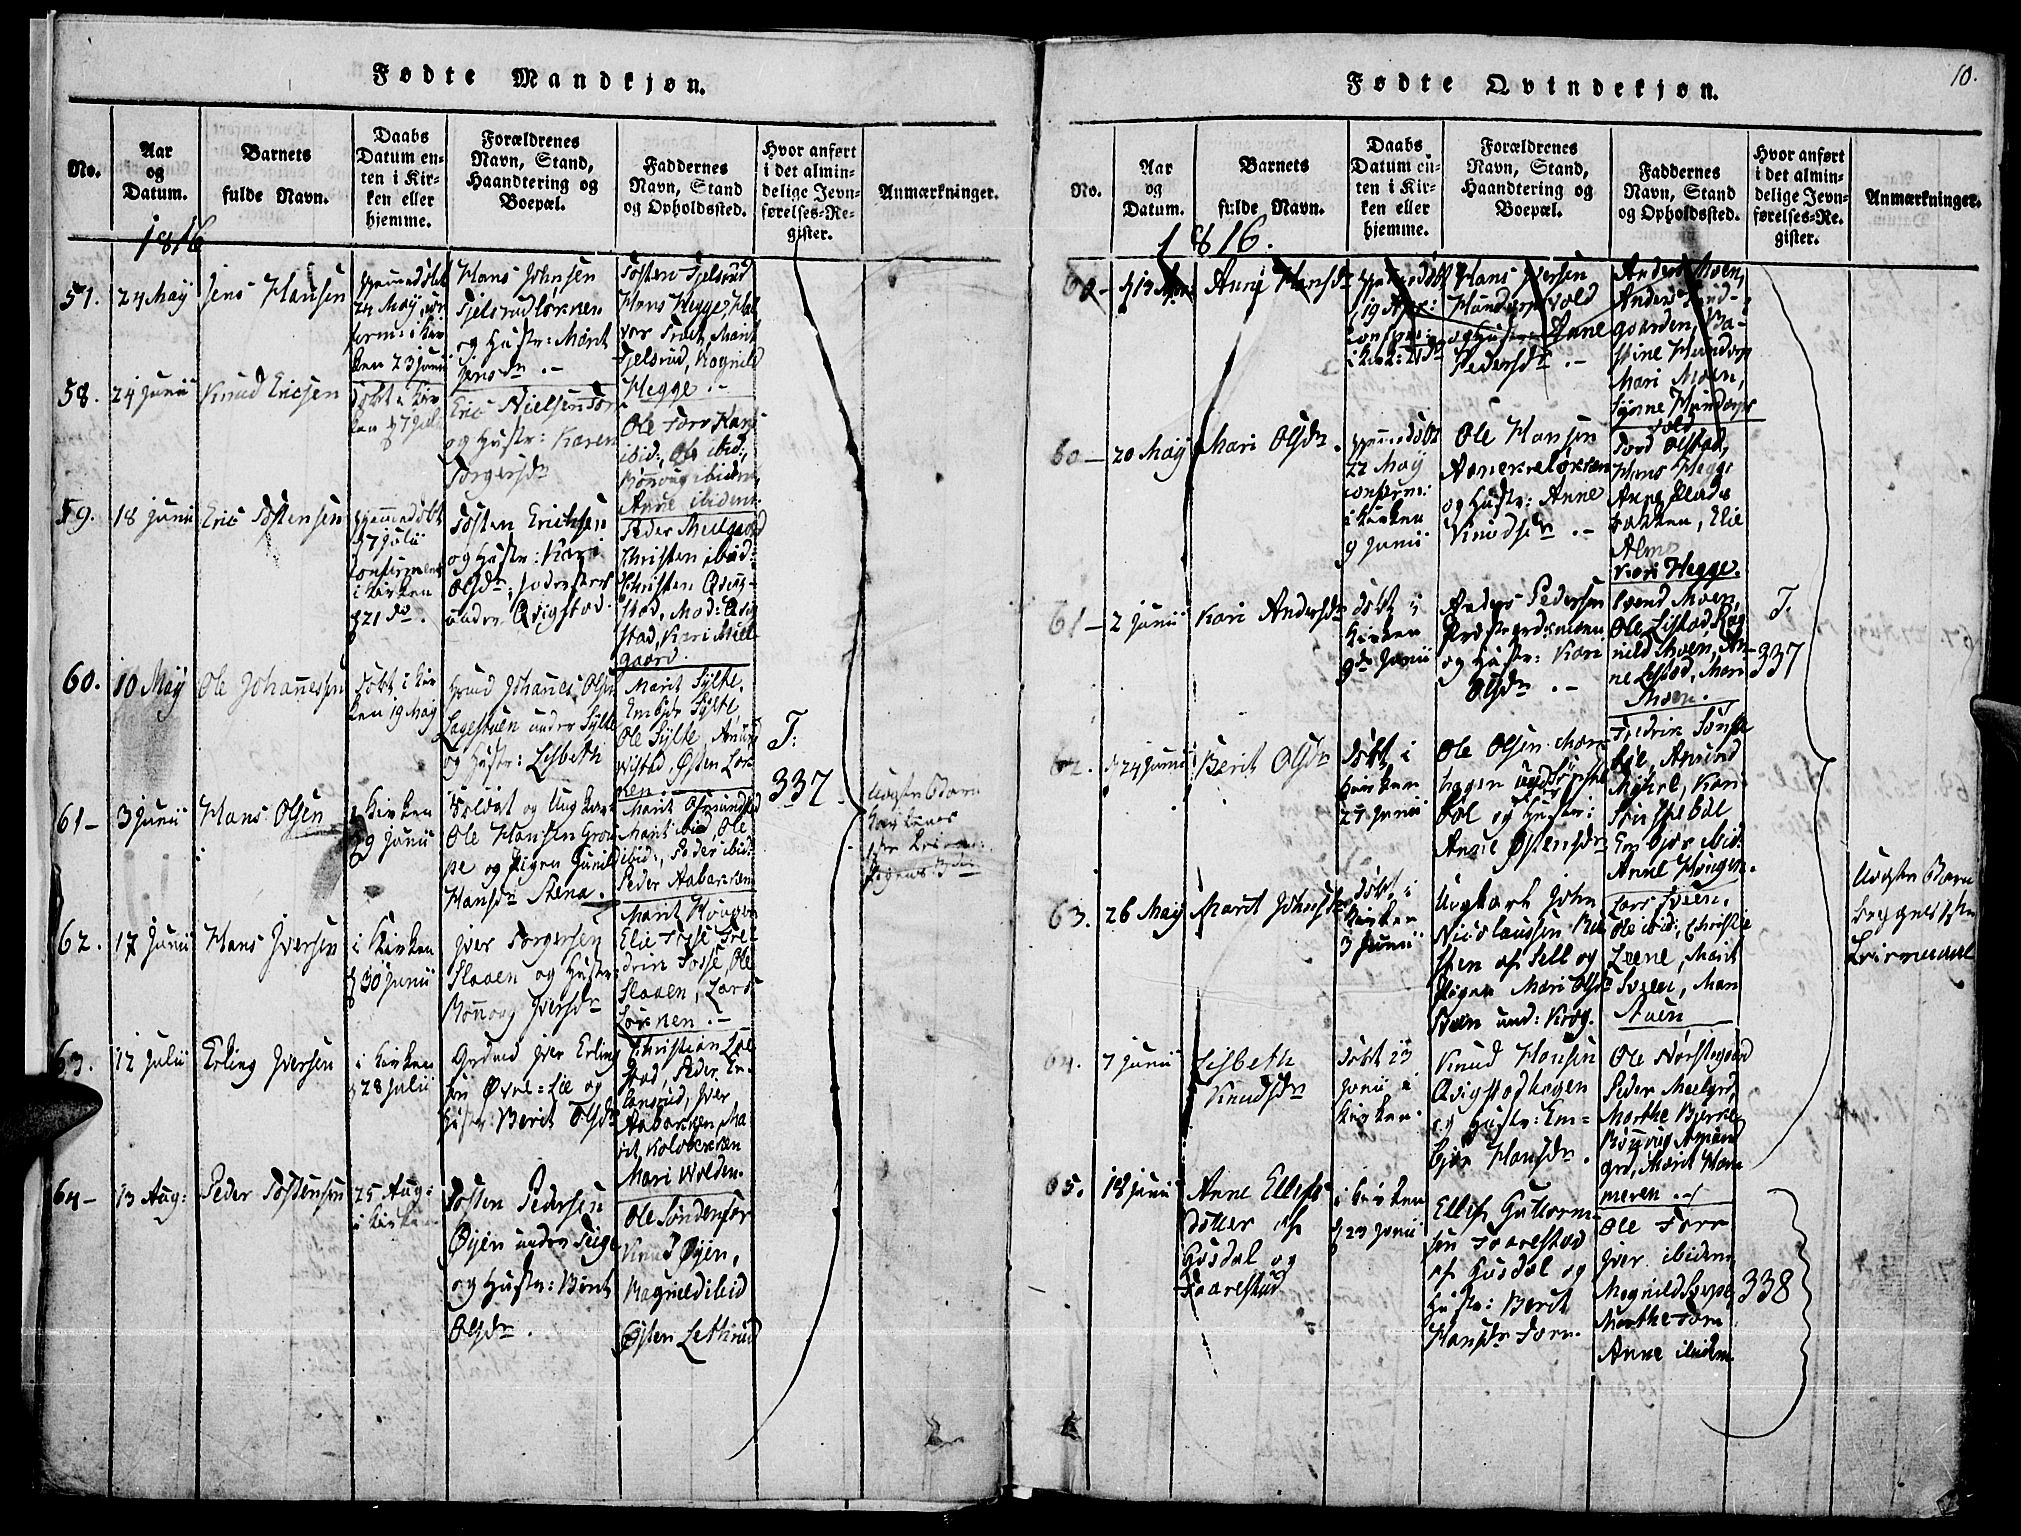 Fødte Mandkjøn.
No.
Aar
og
Datum.
Barnets
fulde Navn.
Daabs
Datum en-
ten i Kir-
ken eller
hjemme.
Forældrenes
Navn, Stand,
Haandtering og
Boepæl.
Faddernes
Navn, Stand
og Opholdssted.
Hvor anført
i det almin-
delige Jevn-
førelses-Re-
gister.
Anmærkninger.
1816
51.
24 May
Jens Hansen
hjemmedøbt
24 May
ken 23 Junii
Hans Johnsen
Fjelsrudløkken
og Hustr: Marit
Jensdr
Tosten Fjelsrud
Hans Hegge, Hal
vor Marit
Fjelsrud, Rognild
Hegge
58.
24 Junii
Knud Ericsen
døbt i kir
ken 7 Julii
Eric Nielsen Tor
og Hustr: Karen
Torgersdr
Ole Torr Hans
ibid:, Ole ibid:,
Rønnoug ibidem,
Anne ibidem
59.
18 Junii
Eric Tostensen
hjemmedøbt
7 Julii
confirmeret
i kirken
21 do.
Tosten Erichsen
og Hustr: Kari
Olsdr,
under Qvigstad.
Peder Meelgaard
Christen ibid:
Christen Qvig-
stad, Mad: Qvig
stad, Kari Miel
gaard.
60.
10 May
Ole Johannessen
døbt i kir
ken 19 May
Johannes Olsen
Lagestuen under Sylte
og Hustr: Lisbeth
Marit Sylte,
Embjør Sylte
Ole Sylte, Amund
Wistad, Østen Løk
ken
T:
337
61-
3 Junii
Hans Olsen
i kirken
9 Junii
Soldat og Ungkarl
Ole Hansen Grou
pe og Pigen Gunild
Hansdr Stena.
Marit Omundstad
Marit ibid, Ole
ibid:, Peder ibid:
Peder Aabakken
Uægte Barn
62.
17 Junii
Hans Iversen
i kirken
30 Junii
Iver Torgersen
Slaaen og Hustr:
Rønnoug Iversdr
Marit Hougen
Elie Fosse Fre-
drik Fosse, Ole
Slaaen, Lars
Løkken.
63.
12 Julii
Erling Iversen
i kirken
28 Julii
Iver Erling
sen Øvre-Lie og
Hustr: Berit Olsdr
Christian Lie
stad, Peder En-
Iver
Aabakken, Ma
rit Kolobekken
Mari Wolden.
64-
13 Aug:
Peder Tostensen
25 Aug:
i kirken
Tosten Pedersen
Øyen under Teige
og Hustr: Berit
Olsdr.
Ole Søndenfor
Knud Øyen,
Ragnild ibid
Østen Letterud
10.
Fødte Qvindekjøn.
No.
Aar
og
Datum.
Barnets
fulde Navn.
Daabs
Datum en-
ten i Kir-
ken eller
hjemme.
Forældrenes
Navn, Stand,
Haandtering og
Boepæl.
Faddernes
Navn, Stand
og Opholdssted.
Hvor anført
i det almin-
delige Jevn-
førelses-Re-
gister.
Anmærkninger.
1816.
60-
Anne Hansdr
hjemmedøbt
19 Apr:
Hans Iversen
Hundorpvold
og Hustr: Anne
Pedersdr
Anders Moen,
Anders Sund-
gaarden, Ba-
stine Hundorp
Mari Moen,
Synne Hundorp
vold
60-
20 May
Mari Olsdr.
hjemmedøbt
22 May
confirm:
i kirken
9 Junii
Ole Hansen
og Hustr: Anne
Knudsdr
Tord Olstad,
Hans Hegge
Anne Plads
bakken, Elie
Alme
Kari Hegge.
61-
2 Junii
Kari Andersdr
døbt i
kirken
9de Junii
Anders Pedersen
Præstegrdsmoen
og Hustr: Kari
Olsdr
Svend Moen,
Ole Listad, Rag
nild Moen, An
ne Listad, Mari
Moen.
T.
337
62.
24 Junii
Berit Olsdr
døbt i
kirken
27 Junii
Ole Olsen
hagen under Tønste
bøl og Hustr:
Anne Østensdr
Fredrik Tønste
bøl, Amund
Myhre, Kari
Tønstebøl
Embjør ibid:
Anne Hougen.
63.
26 May
Marit Johnsdr
døbt i
kirken
3 Junii
Ungkarl John
Nicolaussen
af Sell og
Pigen Mari Olsdr
Bøen und: Krog.
Lars Sveen,
Ole ibid:, Christie
Leene, Marit
Sveen, Mari
Stuen
Uægte Barn
Begges 1ste
Leiermaal
64.
7 Junii
Lisbeth
Knudsdr
døbt 23
Junii i
kirken.
Knud Hansen
Qvigstadhagen
og Hustr: Em-
bjør Hansdr.
Ole Norstegaard
Peder Meelgrd,
Marthe Bjerke
Rønnoug Amund
grd, Marit Ham
meren
65.
18 Junii
Anne Ellefs
dotter af
Gusdal og
Faarestad
i kirken
23 Junii
Ellef Guttorm-
sen Faarestad
af Gusdal og
Hustr: Berit
Hansdr Torr.
Ole Torr
Iver ibidem
Magnild
Marthe Torr
Anne ibidem
338